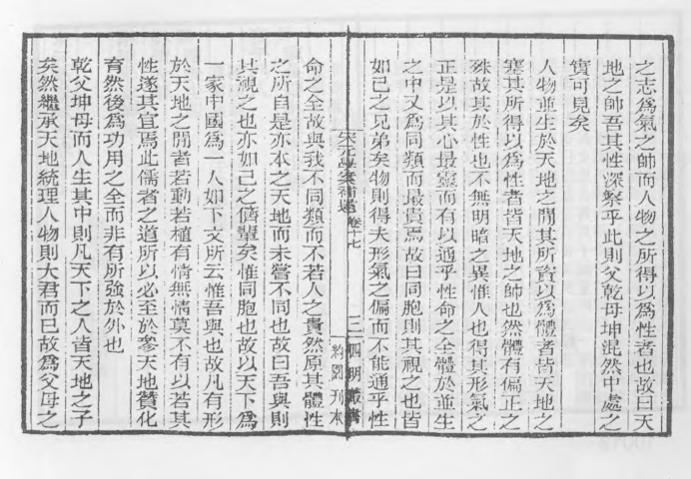 之志爲氣之帥而人物之所得以爲性者也故曰天
地之帥吾其性深察乎此則父乾母坤混然中處之
實可見矣
人物並生於天地之閒其所資以爲體者皆天地之
塞其所得以爲性者皆天地之帥也然體有偏正之
殊故其於性也不無明暗之異惟人也得其形氣之
正是以其心最靈而有以通乎性命之全體於並生
之中又爲同類而最貴焉故曰同胞則其視之也皆
如己之兄弟矣物則得夫形氣之偏而不能通乎性
宋元學案補遺 卷十七
四明叢書
約園刊本
命之全故與我不同類而不若人之貴然原其體性
之所自是亦本之天地而未嘗不同也故曰吾與則
其視之也亦如己之儕輩矣惟同胞也故以天下爲
一家中國爲一人如下文所云惟吾與也故凡有形
於天地之閒者若動若植有情無情莫不有以若其
性遂其宜焉此儒者之道所以必至於參天地贊化
育然後爲功用之全而非有所強於外也
乾父坤母而人生其中則凡天下之人皆天地之子
矣然繼承天地統理人物則大君而已故爲父母之